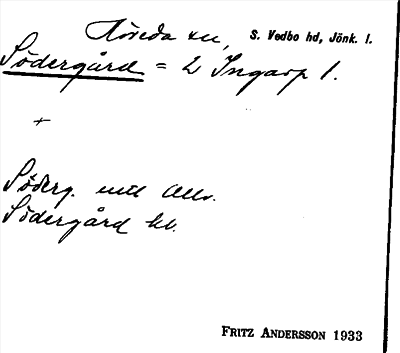 Höreda sn, S. Vedbo hd, Jönk. l.
Södergård = 2 Ingarp 1.
+
Söderg. utl Allm.
Södergård bb.
FRITZ ANDERSSON 1933